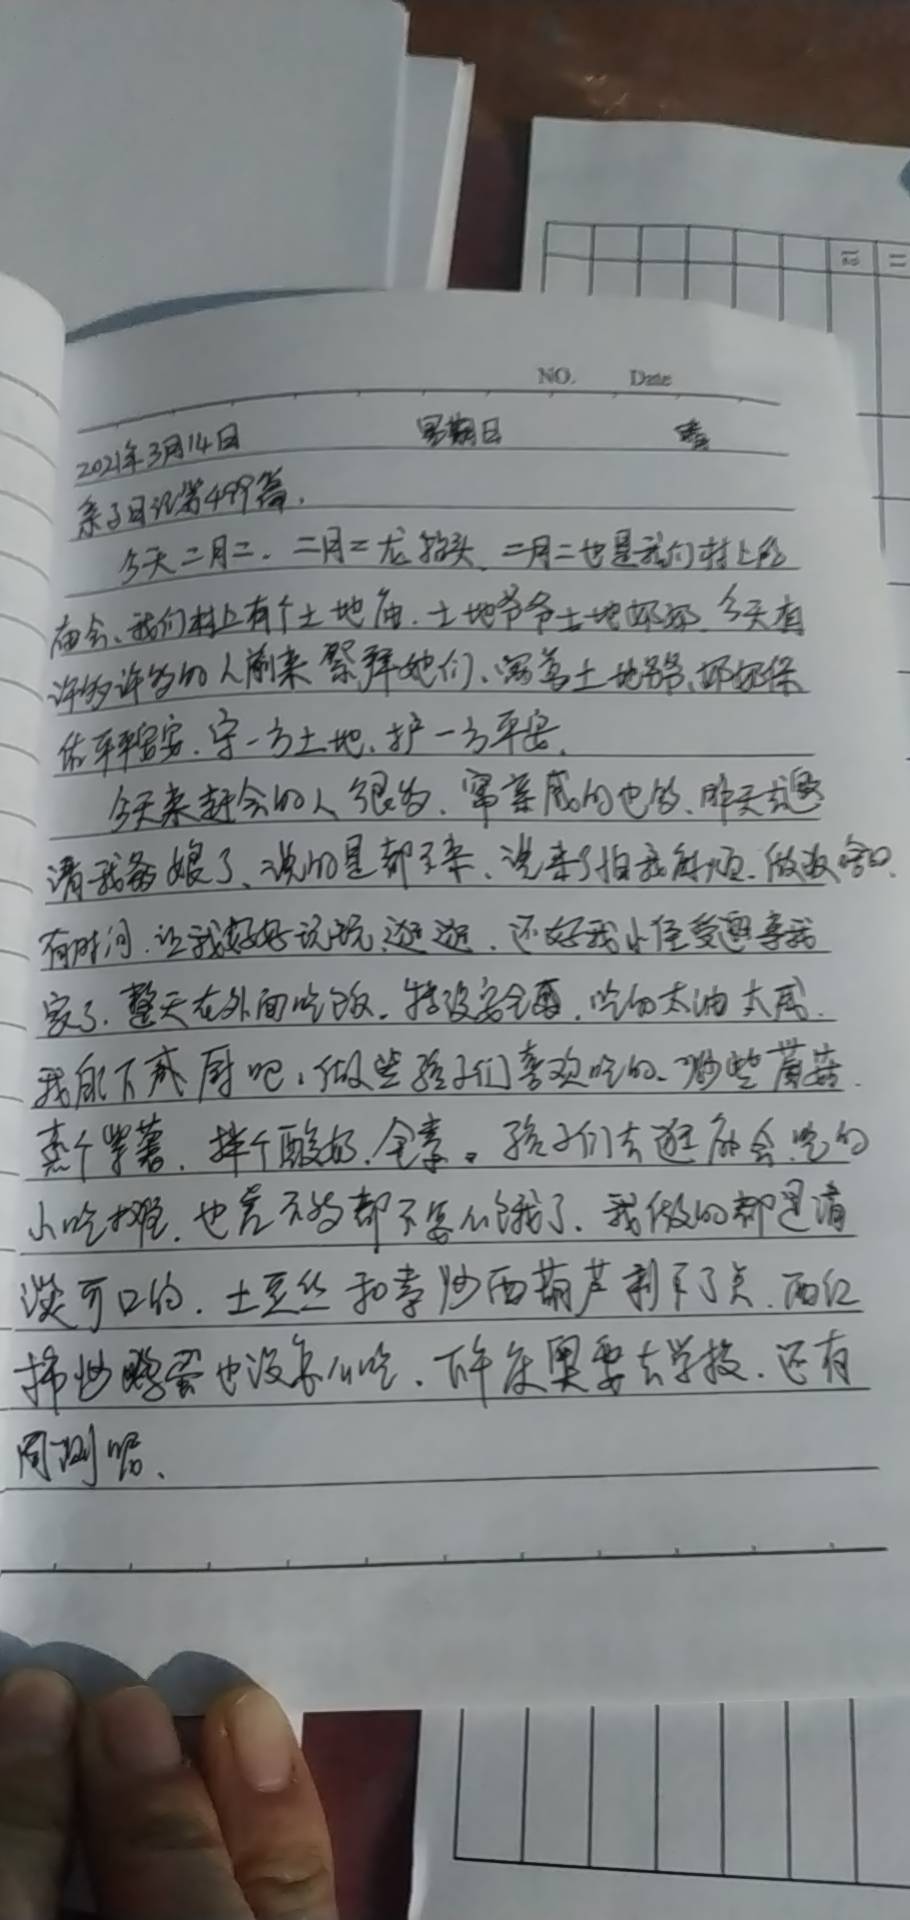 NO. Date
2021年3月14日 星期日 晴
亲子日记第499篇.
今天二月二.二月二龙抬头、二月二也是我们村上的
庙会、我们村上有个土地庙.土地爷爷土地奶奶.今天有
许多许多的人前来祭拜她们、土地爷爷、奶奶保
佑平平安安.守一方土地、护一方平安、
今天来赶会的人很多.亲戚的也多、昨天
请我爸娘了、说的是都不来、说来了怕我麻烦.做饭
有时间.让我好好玩玩逛逛.还好我小侄受邀来我
家了.整天在外面吃饭.特没安全.吃的太油太咸.
我亲下厨吧,做些孩子们喜欢吃的、炒些蘑菇.
蒸个紫薯.拌个酸奶.全素。孩子们去逛庙会.吃的
小吃摊.也差不多都不怎么饿了.我做的都是清
淡可口的.土豆丝和素炒西葫芦剩下了点.西红
柿炒鸡蛋也没怎么吃.下午庆奥要去学校.还有
周测呢、